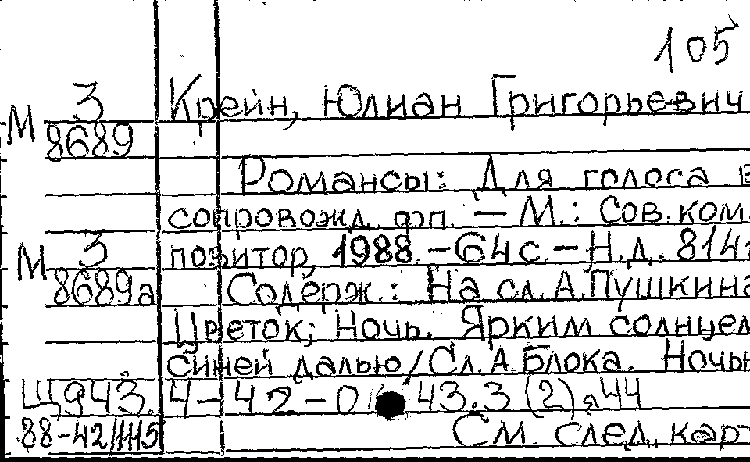 105
М 3 Крейн, Юлиан Григорьевич
8689
Романсы: Для голоса в
сопровожд. фп. — М.: Сов. ком-
М 3 позитор, 1988. — 64 с. — Н.д. 814
8689а Содерж.: На сл. А. Пушкина
Цветок; Ночь. Ярким солнцем
синей далью / Сл. А. Блока. Ночь
Щ943. 4-42-0 43.3(2)я44
88-42 См. след. карт